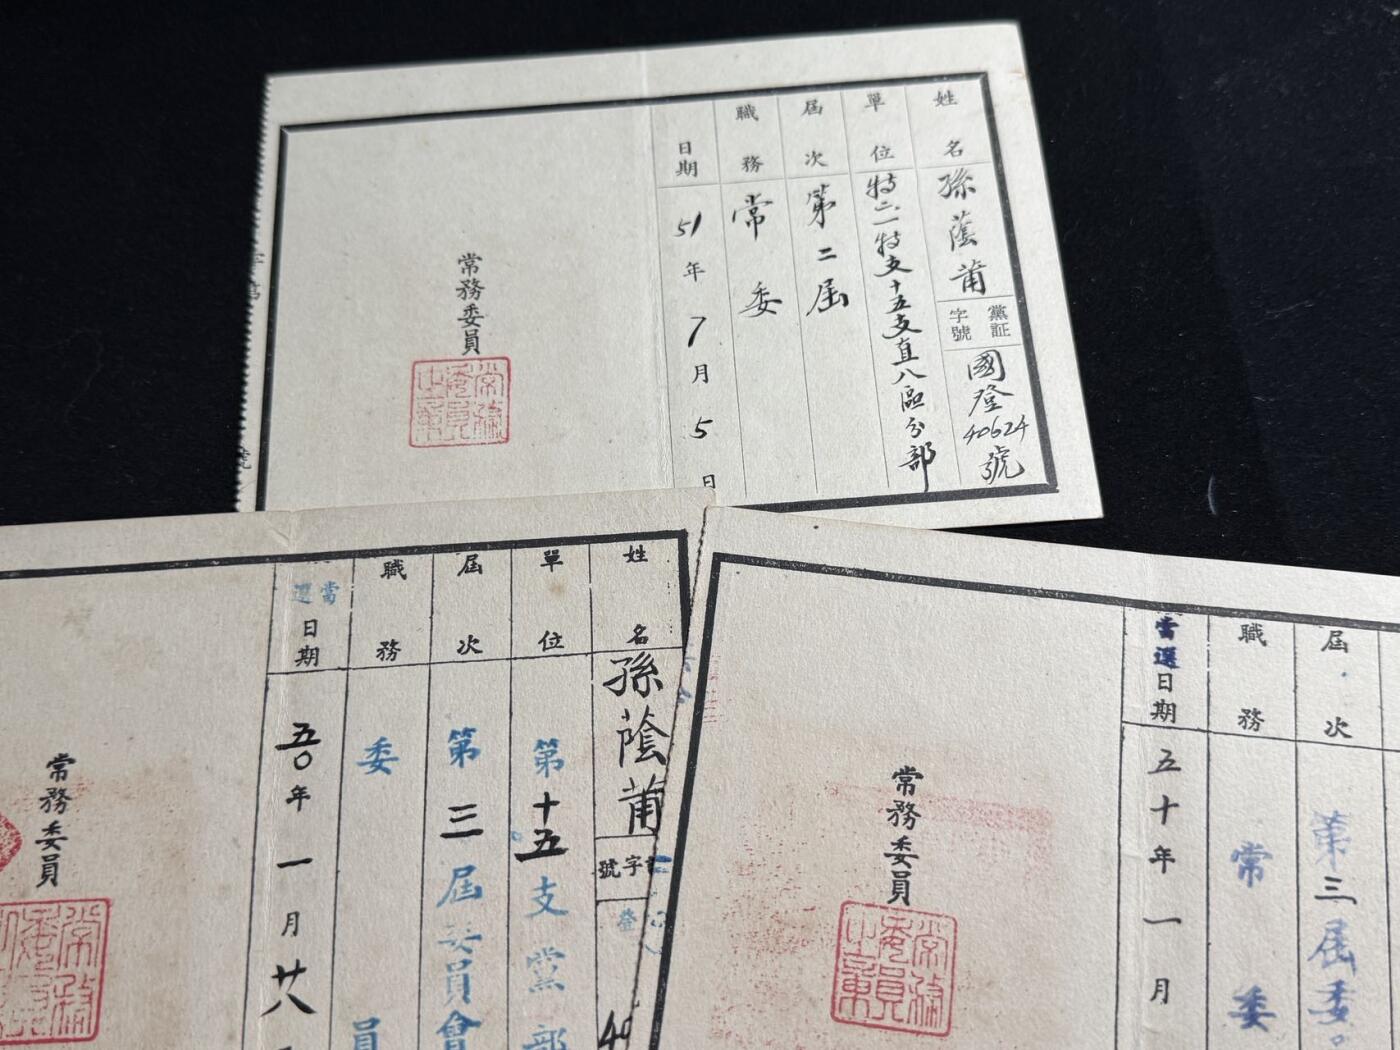 姓名
孫蔭莆
黨証字號
國登40624號
單位
特二一特支十五支直八區分部
屆次
第二屆
職務
常委
日期
51年7月5日
常務委員
常務委員之章
姓名
孫蔭莆
字號
登
40
單位
第十五支黨部
屆次
第三屆委員會
職務
委員
當選日期
五〇年一月廿八
常務委員
常務
屆次
第三屆委
職務
常委
當選日期
五十年一月
常務委員
常務委員之章